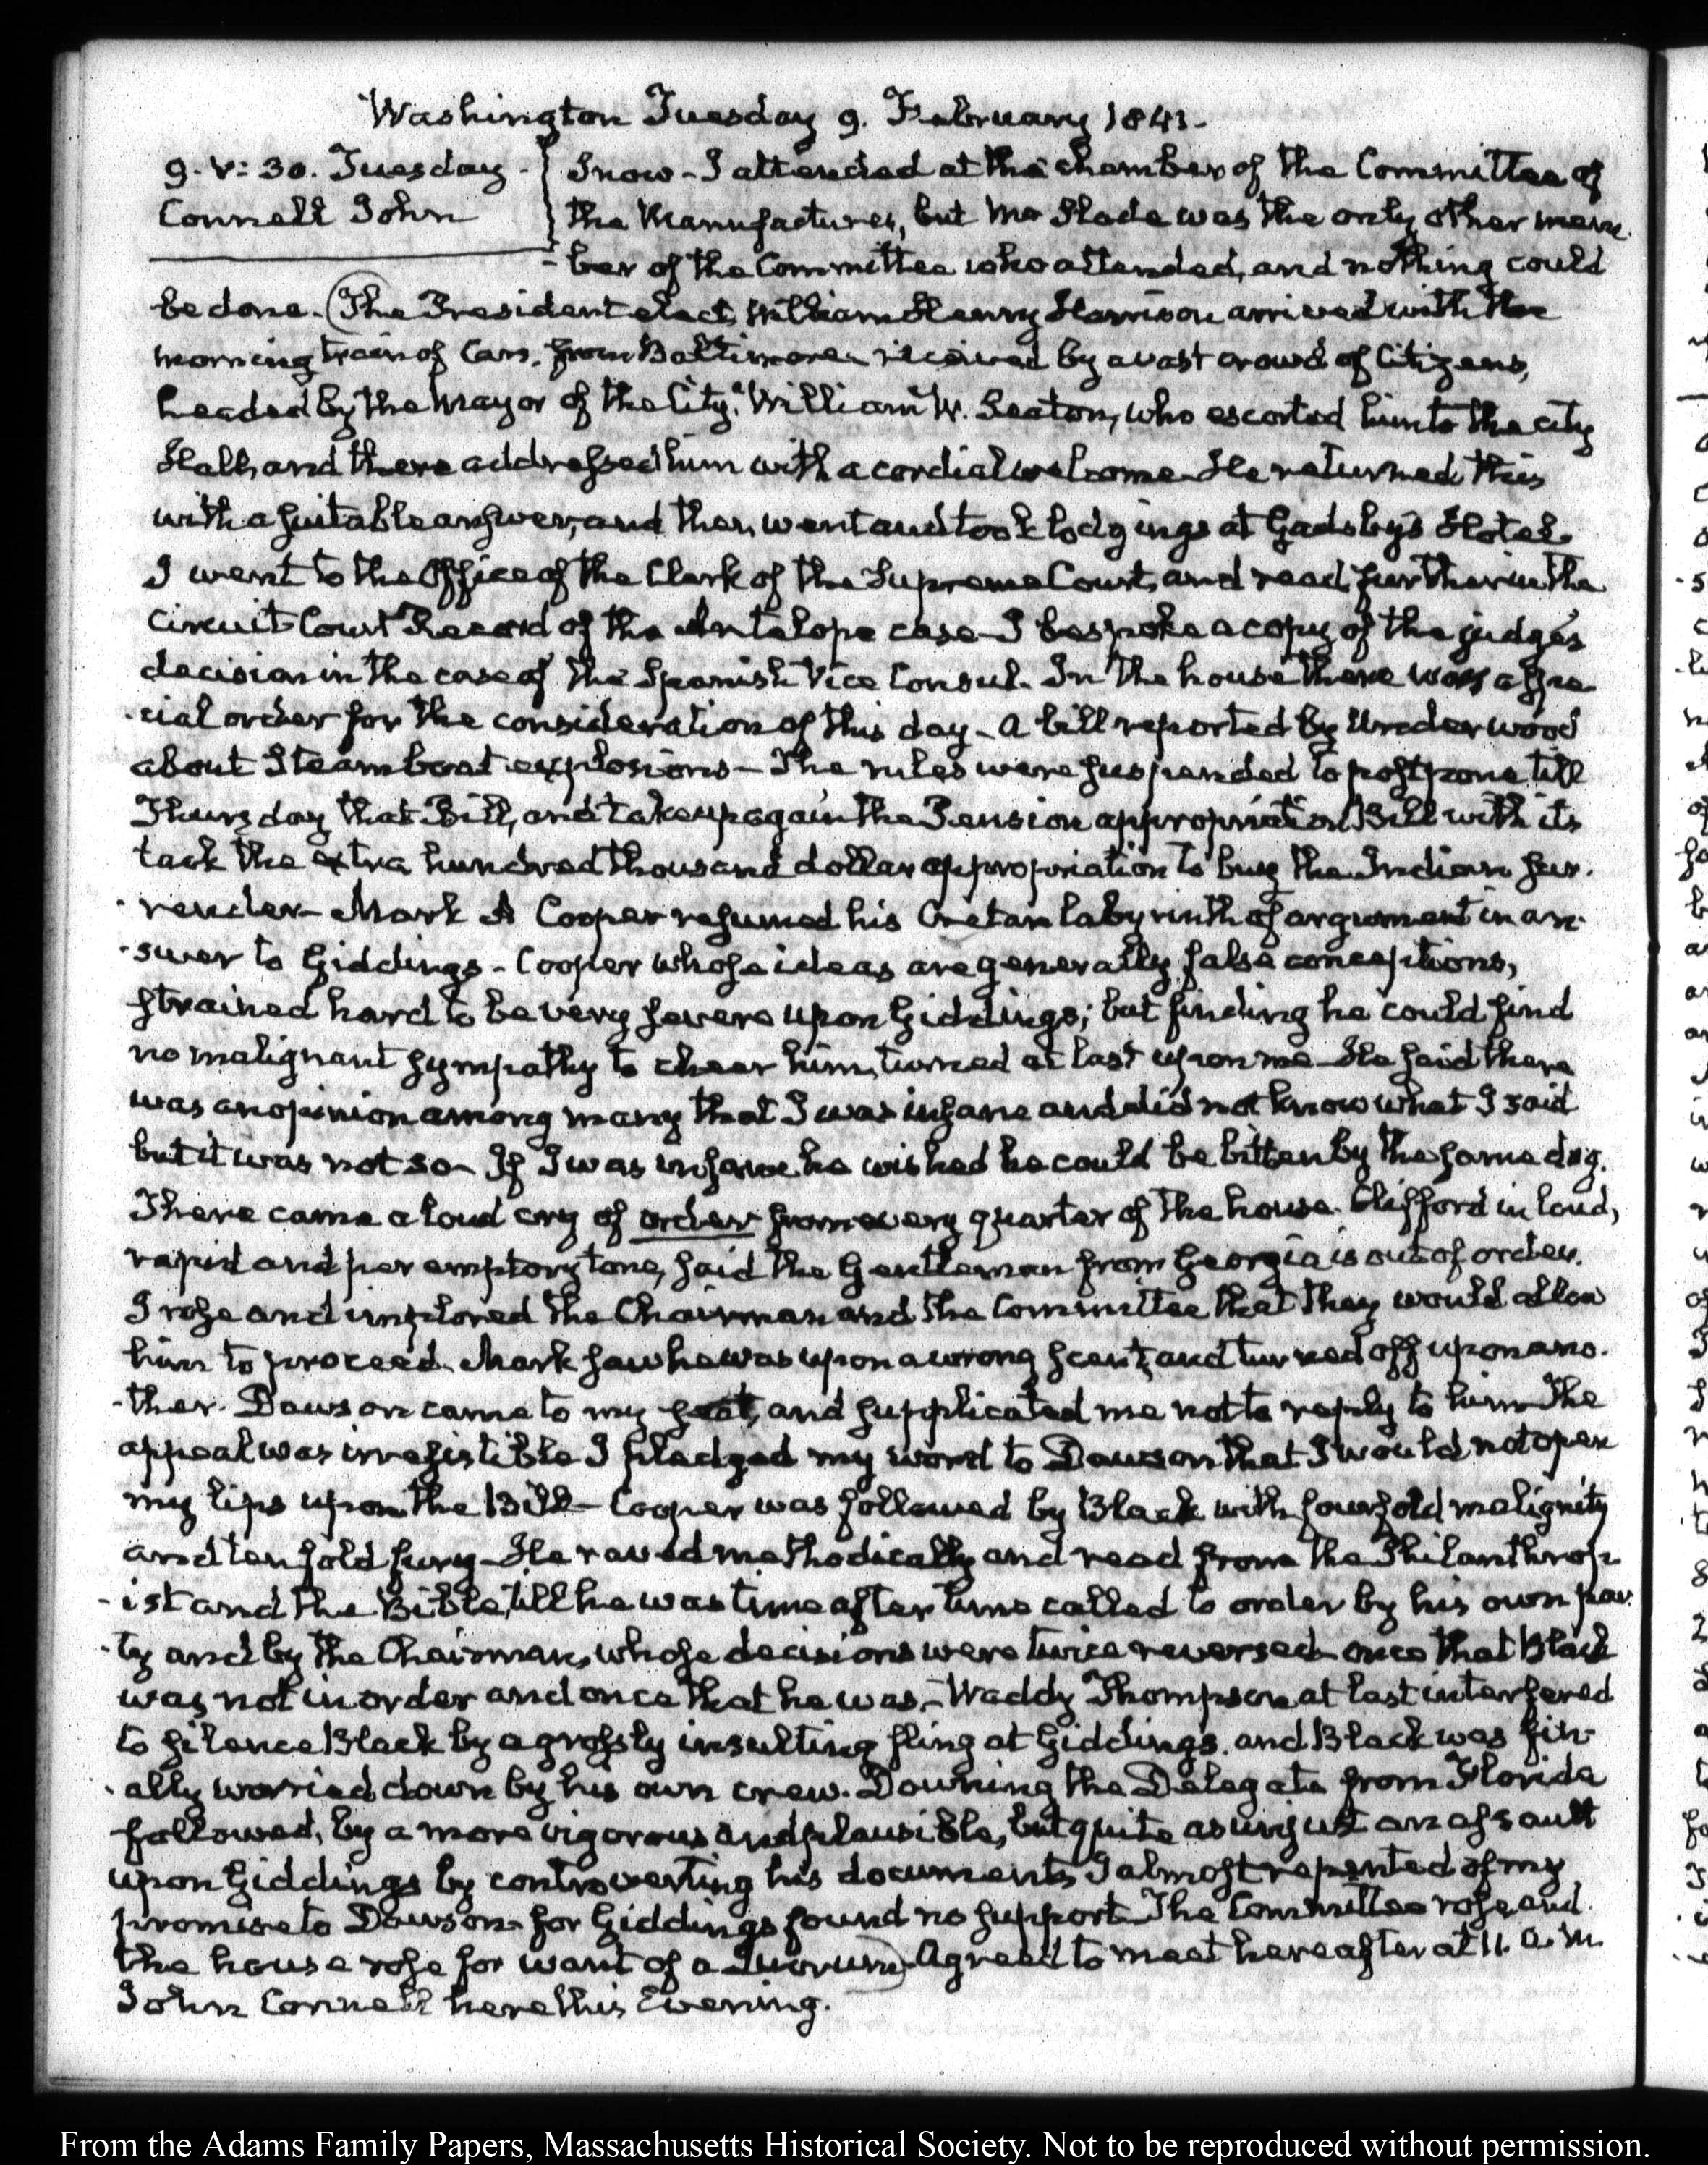 Washington Tuesday 9. February 1841.
9. V: 30. Tuesday
Connell John
Snow - I attended at the chamber of the Committee of
the Manufactures, but Mr Slade was the only other mem-
-ber of the Committee who attended, and nothing could
be done. (The President elect, William Henry Harrison arrived with the
morning train of Cars, from Baltimore received by a vast crowd of Citizens,
headed by the Mayor of the City, William W. Seaton, who escorted him to the city
Hall, and there addressed him with a cordial welcome - He returned this
with a suitable answer, and then went and took lodgings at Gadsby's Hotel.
I went to the Office of the Clerk of the Supreme Court, and read further in the
Circuit Court Record of the Antelope case - I bespoke a copy of the judge's
decision in the case of the Spanish Vice Consul. In the house there was a spe-
-cial order for the consideration of this day - A bill reported by Underwood
about Steam boat explosions - The rules were suspended to postpone till
Thursday that Bill, and take up again the Pension appropriation Bill with its
tack the extra hundred thousand dollar appropriation to buy the Indian sur-
-render - Mark A Cooper resumed his Cretan labyrinth of argument in an-
-swer to Giddings - Cooper whose ideas are generally false conceptions,
strained hard to be very severe upon Giddings; but finding he could find
no malignant sympathy to cheer him, turned at last upon me - He said there
was an opinion among many that I was insane and did not know what I said
but it was not so - If I was insane he wished he could be bitten by the same dog.
There came a loud cry of order from every quarter of the house. Clifford in loud,
rapid and peremptory tone, said the Gentleman from Georgia is out of order.
I rose and implored the Chairman and the Committee that they would allow
him to proceed. Mark saw he was upon a wrong scent, and turned off upon ano-
-ther. Dawson came to my seat, and supplicated me not to reply to him The
appeal was irresistible I pledged my word to Dawson that I would not open
my lips upon the Bill - Cooper was followed by Black with fourfold malignity
and tenfold fury - He raved methodically and read from the Philanthrop-
-ist and the Bible, till he was time after time called to order by his own par-
-ty and by the Chairman, whose decisions were twice reversed - once that Black
was not in order and once that he was. - Waddy Thompson at last interfered
to silence Black by a grossly insulting fling at Giddings. and Black was fin-
-ally worried down by his own crew. Downing the Delegate from Florida
followed, by a more vigorous and plausible, but quite as unjust an assault
upon Giddings by controverting his documents, I almost repented of my
promise to Dawson - for Giddings found no support - The Committee rose, and
the house rose for want of a Quorum) Agreed to meet hereafter at 11. a.m.
John Connell here this Evening.
From the Adams Family Papers, Massachusetts Historical Society. Not to be reproduced without permission.